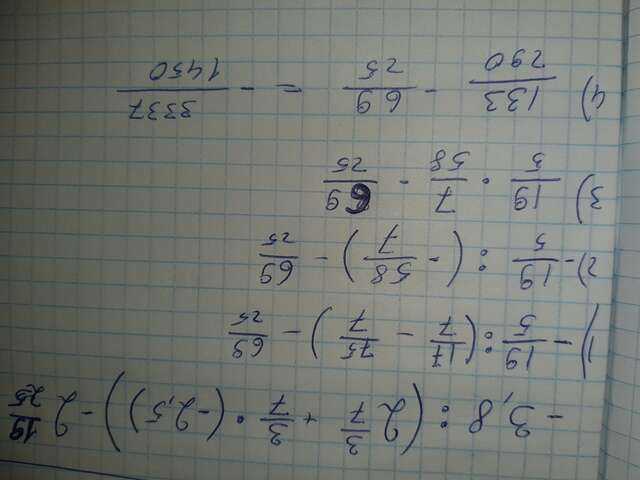 -3,8 : (2 3/7 + 3/7 · (-2,5)) - 2 19/25
1) - 19/5 : (17/7 - 75/7) - 69/25
2) - 19/5 : (- 58/7) - 69/25
3) 19/5 · 7/58 - 69/25
4) 133/290 - 69/25 = - 3337/1450